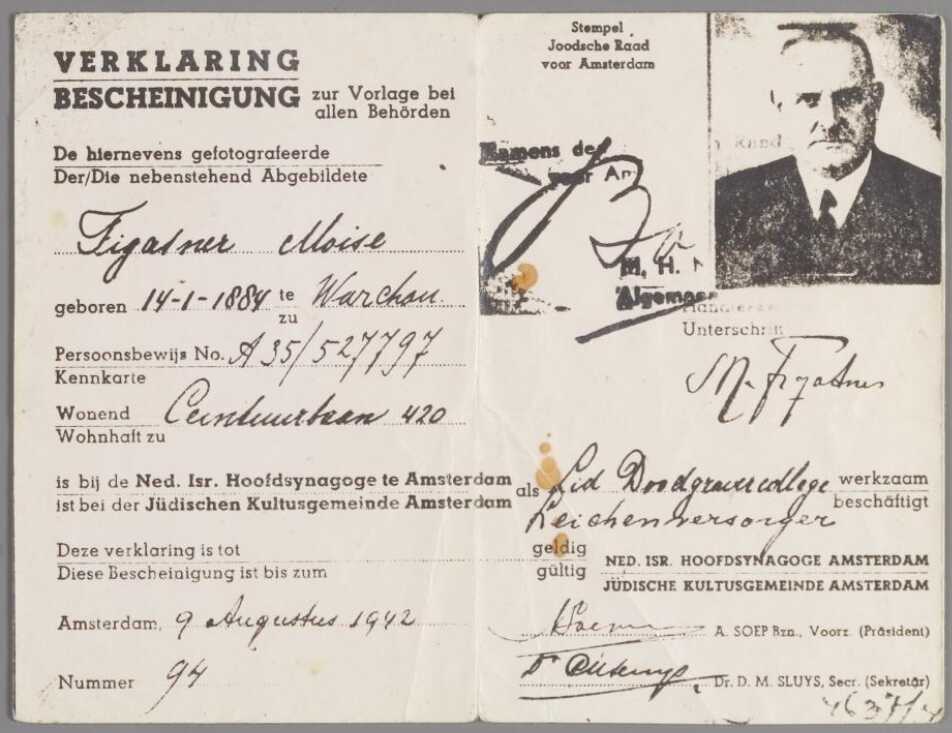 VERKLARING
BESCHEINIGUNG zur Vorlage bei
allen Behörden
De hiernevens gefotografeerde
Der/Die nebenstehend Abgebildete
Figatner Moise
geboren 14-1-1884 te Warchau
zu
Persoonsbewijs No. A35/527797
Kennkarte
Wonend Ceintuurbaan 420
Wohnhaft zu
is bij de Ned. Isr. Hoofdsynagoge te Amsterdam
ist bei der Jüdischen Kultusgemeinde Amsterdam
Deze verklaring is tot
Diese Bescheinigung ist bis zum
Amsterdam, 9 Augustus 1942
Nummer 94
Stempel
Joodsche Raad
voor Amsterdam
Namens de
voor Am
M. H.
Algemeen
Unterschrift
M. Figatner
als Lid Doodgraverscollege werkzaam
beschäftigt
Leichenversorger
geldig
gültig
NED. ISR. HOOFDSYNAGOGE AMSTERDAM
JÜDISCHE KULTUSGEMEINDE AMSTERDAM
A. SOEP Bzn., Voorz. (Präsident)
Dr. D. M. SLUYS, Secr. (Sekretär)